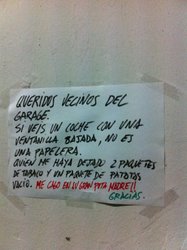 QUERIDOS VECINOS DEL
GARAGE.
SI VEIS UN COCHE CON UNA
VENTANILLA BAJADA, NO ES
UNA PAPELERA.
QUIEN ME HAYA DEJADO 2 PAQUETES
DE TABACO Y UN PAQUETE DE PATATAS
VACIO. ME CAGO EN SU GRAN PUTA MADRE!!
GRACIAS.